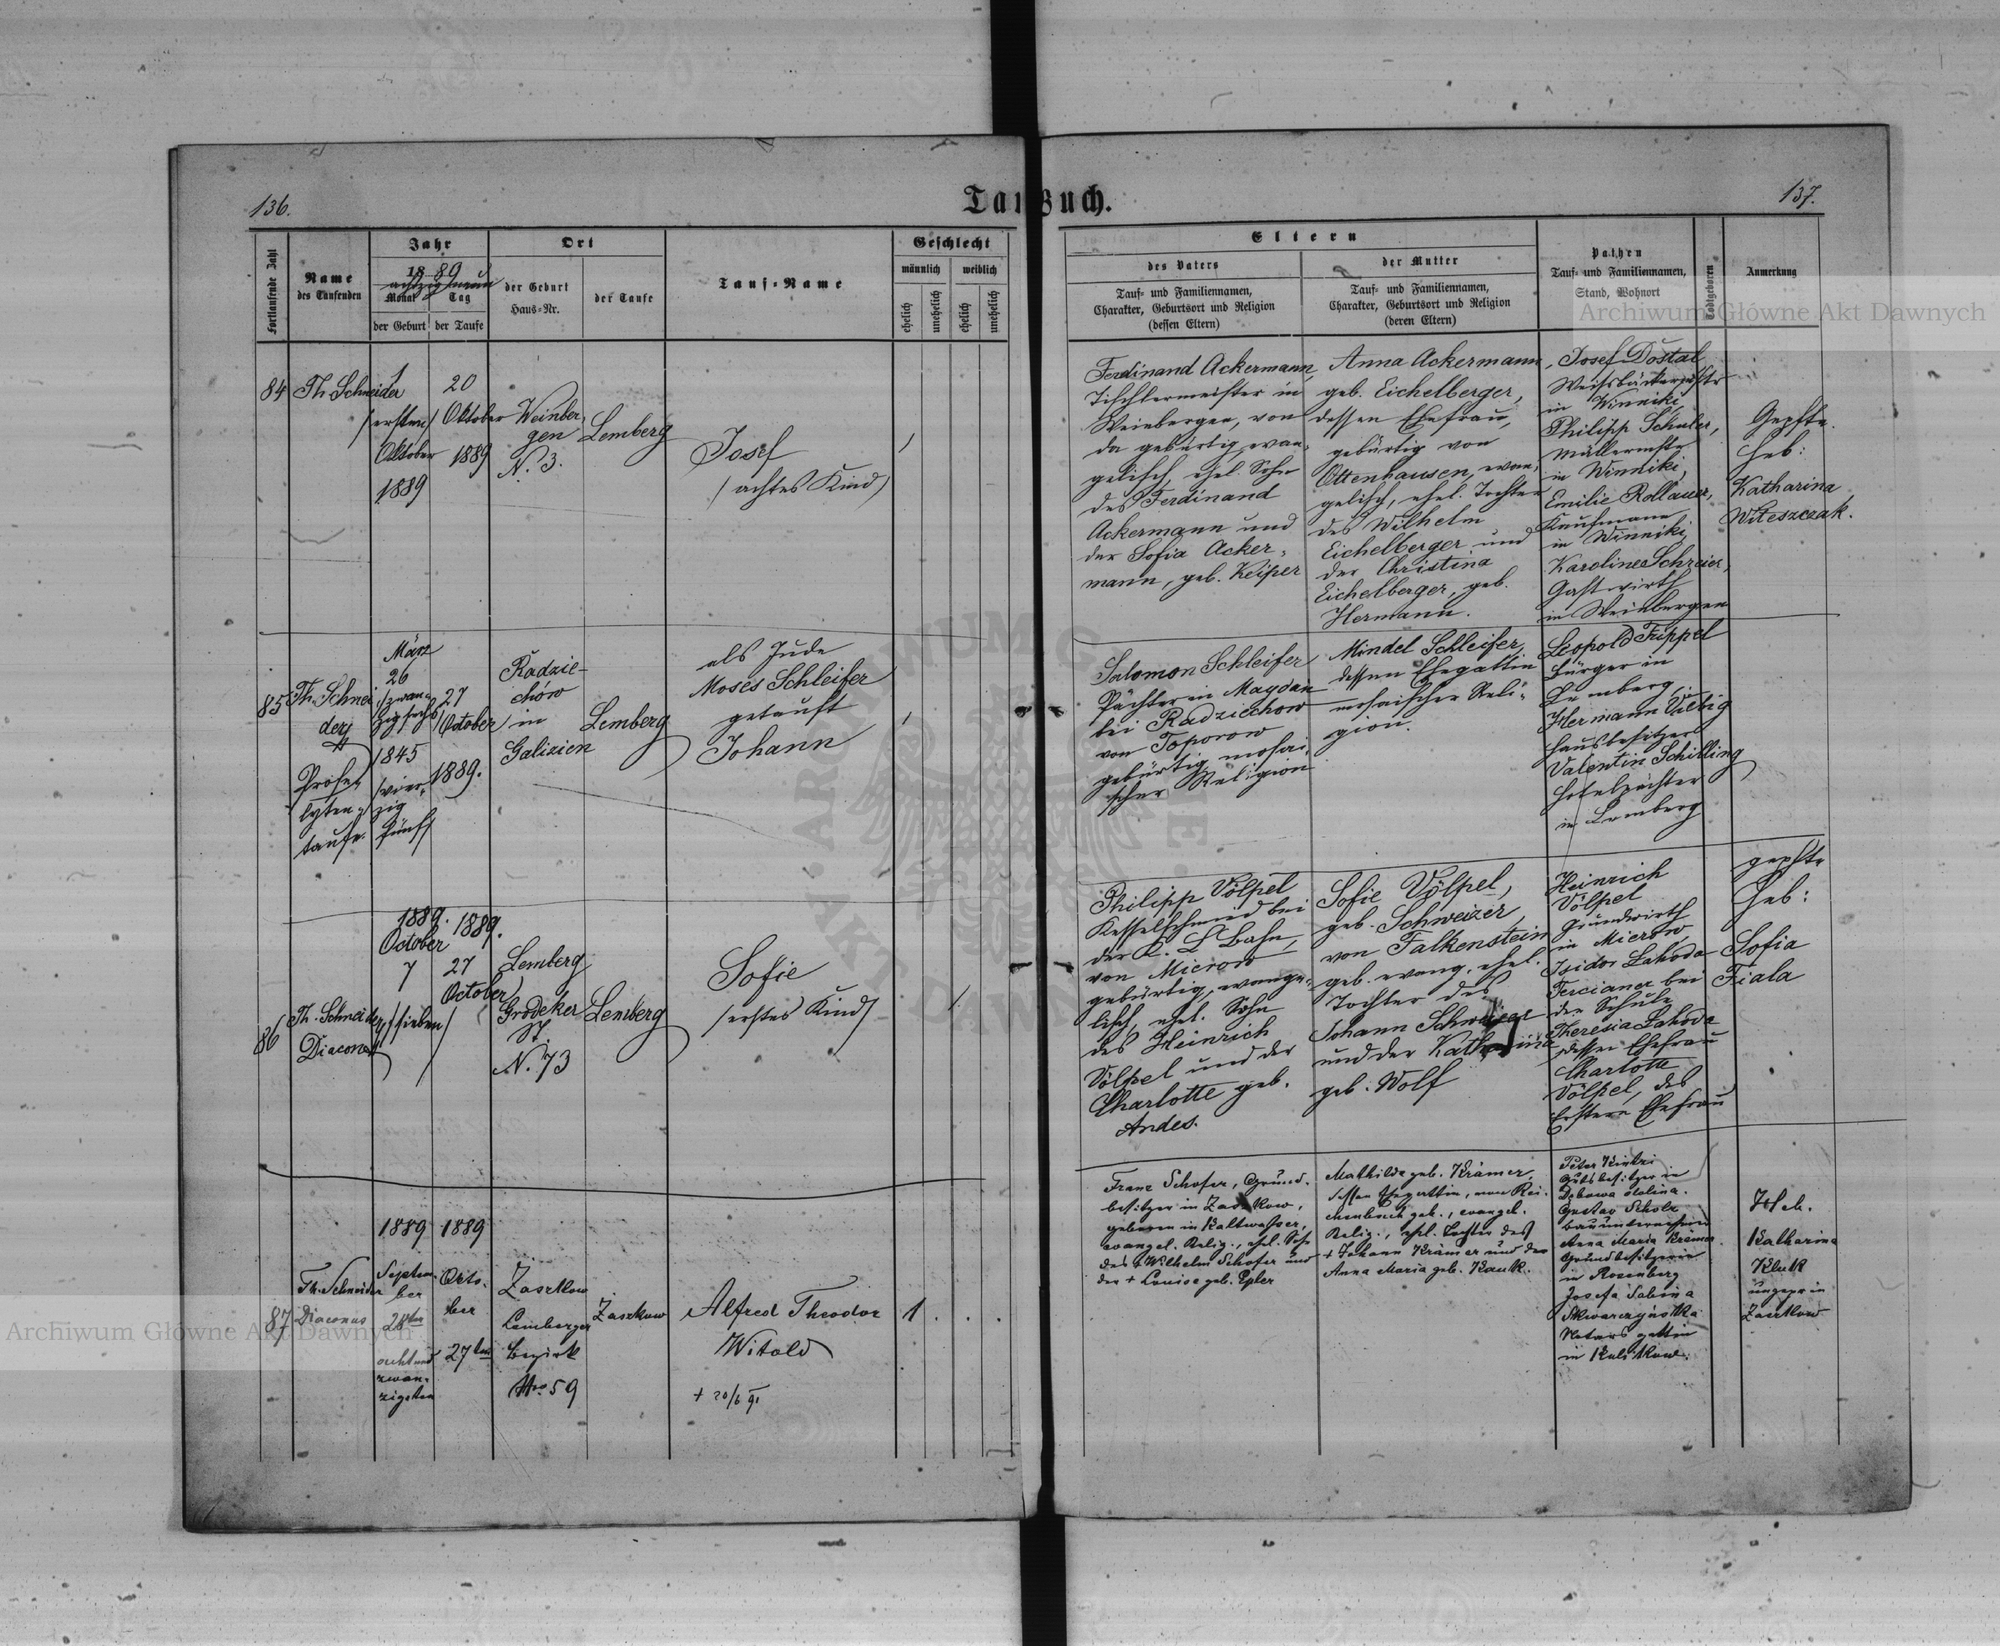 136.
Taufbuch.
137.
Fortlaufende Zahl
Name
des Taufenden
Jahr
1889
achtzig neun
Monat
Tag
der Geburt
der Taufe
Ort
der Geburt
Haus-Nr.
der Taufe
Tauf-Name
Geschlecht
männlich
weiblich
ehelich
unehelich
ehelich
unehelich
Eltern
des Vaters
Tauf- und Familiennamen,
Charakter, Geburtsort und Religion
(dessen Eltern)
der Mutter
Tauf- und Familiennamen,
Charakter, Geburtsort und Religion
(deren Eltern)
Pathen
Tauf- und Familiennamen,
Stand, Wohnort
Todtgeboren
Anmerkung
84
Th. Schneider
1
/ersten/
Oktober
1889
20
Oktober
1889
Weinber-
gen
N. 3.
Lemberg
Josef
/achtes Kind/
1
Ferdinand Ackermann,
Tischlermeister in
Weinbergen, von
da gebürtig, evan-
gelisch, ehel. Sohn
des Ferdinand
Ackermann und
der Sofia Acker-
mann, geb. Keiper
Anna Ackermann
geb. Eichelberger,
dessen Ehefrau,
gebürtig von
Ottenhausen, evan-
gelisch, ehel. Tochter
des Wilhelm
Eichelberger und
der Christina
Eichelberger, geb.
Hermann.
Josef Dostal
in Winniki,
Philipp Schuler,
Müllermstr
in Winniki,
Emilie Rollauer,
Kaufmann
in Winniki,
Karoline Schreier,
Gastwirth
in Weinbergen
Gepfte.
Heb:
Katharina
Witeszczak.
85
Th. Schnei
der
Prose-
lyten-
taufe.
März
26
/zwan-
zig sechs/
1845
/vier-
zig
fünf/
27
October
1889.
Radzie-
chów
in
Galizien
Lemberg
als Jude
Moses Schleifer
getauft
Johann
1
Salomon Schleifer
Pächter in Maydan
bei Radziechow
von Toporow
gebürtig, mosai-
scher Religion
Mindel Schleifer,
dessen Ehegattin
mosaischer Reli-
gion.
Leopold Trippel
Bürger in
Lemberg.
Hermann Vielbig
Hausbesitzer
Valentin Schilling
Hotelpächter
in Lemberg
86
Th. Schneider,
Diaconus
1889.
October
7
/sieben/
1889.
27
October
Lemberg
Grodeker
St.
N. 73
Lemberg
Sofie
/erstes Kind/
1
Philipp Völpel
Kesselschmied bei
der K. L. Bahn,
von Mierow
gebürtig, evange-
lisch, ehel. Sohn
des Heinrich
Völpel und der
Charlotte geb.
Andes.
Sofie Völpel,
geb. Schweizer
von Falkenstein
geb. evang. ehel.
Tochter des
Johann Schweizer
und der Katharina
geb. Wolf
Heinrich
Völpel
Grundwirth
in Mierow
Isidor Lahoda
Tercianer bei
der Schule
Theresia Lahoda
dessen Ehefrau
Charlotte
Völpel, des
Erstern Ehefrau
gepfte
Heb:
Sofia
Fiala
87
Th. Schneider
Diaconus
1889
Septem-
ber
28ten
acht und
zwan-
zigsten
1889
Octo-
ber
27ten
Zaszkow
Lemberger
Bezirk
Nro 59
Zaszkow
Alfred Theodor
Witold
+ 20/6 91
1 . . .
Franz Schofer, Grund-
besitzer in Zaszkow,
geboren in Kaltwasser,
evangel. Relig., ehel. Sohn
des + Wilhelm Schofer und
der + Louise geb. Epler
Mathilde geb. Krämer,
dessen Ehegattin, von Rei-
chenbach geb., evangel.
Relig., ehel. Tochter des
+ Johann Krämer und der
Anna Maria geb. Kauk.
Peter Kintzi
Gutsbesitzer in
Debowa Dolina.
Gustav Scholz
Bauunternehmer
Anna Maria Krämer.
Grundbesitzerin
in Rosenberg
Josefa Sabina
Notars gattin
in Kulikow.
Heb.
Katharina
Kluk
ungepr in
Zaszkow
Archiwum Główne Akt Dawnych
Archiwum Główne Akt Dawnych